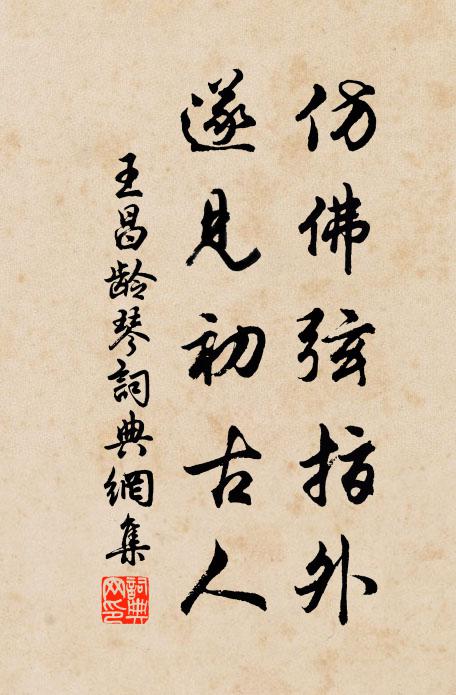 仿佛弦指外
遂见初古人
王昌龄琴詞典網集
詞典网印